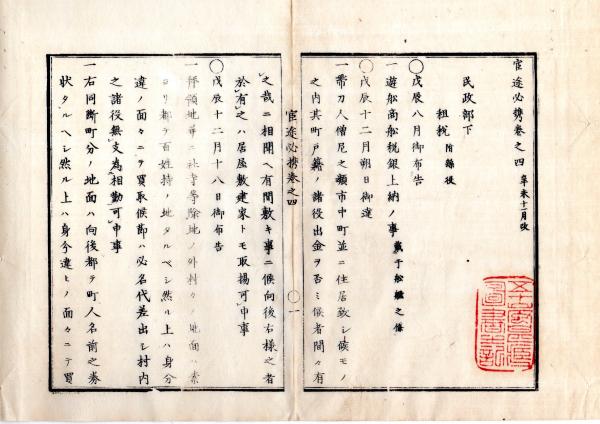 官途必携巻之四 辛未十一月改
民政部下
租税 附録後
◯戊辰八月御布告
一遊船商船税銀上納ノ事 載于船艦之條
◯戊辰十二月朔日御達
一帯刀人僧尼之類市中町並ニ住居致シ候モノ
之内其町戸籍ノ諸役出金ヲ否ミ候者間々有
官途必携巻之四 ◯一
之哉ニ相聞ヘ有間敷キ事ニ候向後右様之者
於有之ハ居屋敷建家トモ取揚可申事
◯戊辰十二月十八日御布告
一拝領地並ニ社寺等除地ノ外村々ノ地面ハ素
ヨリ都テ百姓持ノ地タルヘシ然ル上ハ身分
違ノ面々ニテ買取候節ハ必名代差出シ村内
之諸役無支為相勤可申事
一右同断町分ノ地面ハ向後都テ町人名前之券
状タルヘシ然ル上ハ身分違ヒノ面々ニテ買